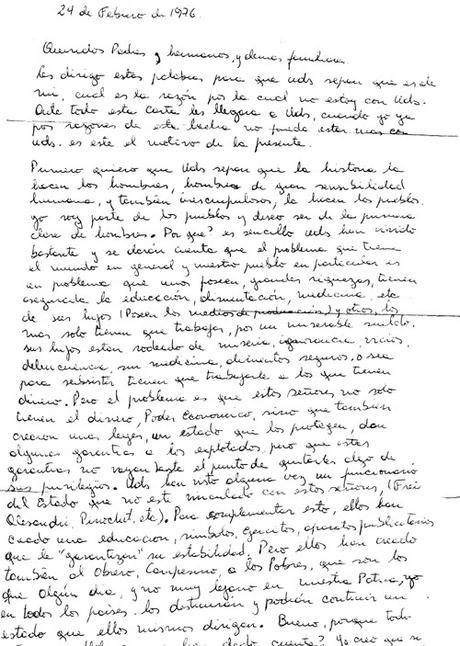 24 de Febrero de 1976.
Queridos Padres y hermanos, y demas familiares
Les dirigo estas palabras para que uds sepan que es de
mi, cual es la razón por la cual no estoy con Uds.
Ante todo esta carta les llegara a Uds, cuando yo ya
por razones de esta lucha no pueda estar mas con
uds. es este el motivo de la presente.
Primero quiero que Uds sepan que la historia la
hacen los hombres, hombres de gran sensibilidad
humana, y también inescrupulosos, la hacen los pueblos.
yo soy parte de los pueblos y deseo ser de la primera
clase de hombres. Por que? es sencillo uds han vivido
bastante y se darán cuenta que el problema que tiene
el mundo en general y nuestro pueblo en particular es
un problema que unos poseen, grandes riquezas, tienen
asegurada la educación, alimentación, medicina etc
de sus hijos (Poseen los medios de producción) y otros, los
mas solo tienen que trabajar, por un miserable sueldo.
sus hijos estan rodeado de miseria, ignorancia, vicios,
delincuencia, sin medicina, alimentos seguros. o sea
para subsistir tienen que trabajarle a los que tienen
dinero. Pero el problema es que estos señores no solo
tienen el dinero, Poder Economico, sino que también
crearon unas leyes, un estado que los protegen, dan
algunas garantias a los explotados, pero que estas
garantias no vayan hasta el punto de quitarles algo de
sus privilegios. Uds han visto alguna vez un funcionario
del Estado que no esté vinculado con estos señores, (Frei
Alessandri, Pinochet, etc). Para complementar esto, ellos han
creado una educacion, simbolos, Ejercitos, aparatos publicitarios
que le "garantizan" su estabilidad. Pero ellos han creado
también al Obrero, Campesino, a los Pobres, que son los
que Algún dia, y no muy lejano en nuestra Patria, yo
en todos los paises. los destruirán y podrán construir un
estado que ellos mismos dirigan. Bueno, porque todo
han dado cuenta? Yo creo que si